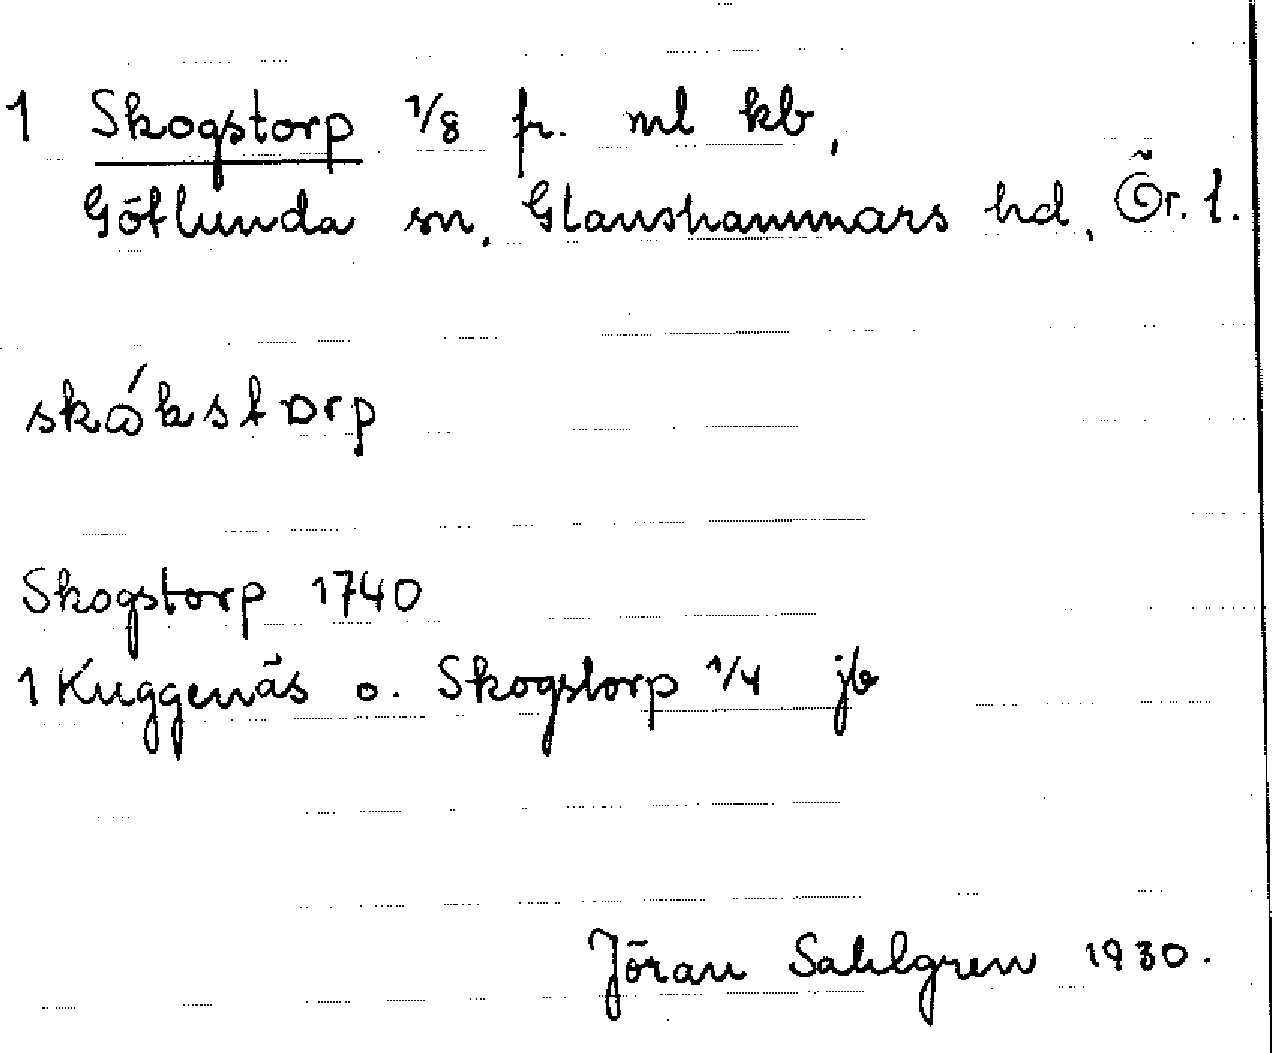 1 Skogstorp 1/8 fr. ml kb,
Götlunda sn, Glanshammars hd, Ör. l.
skókstorp
Skogstorp 1740
1 Kuggenäs o. Skogstorp 1/4 jb
Jöran Sahlgren 1930.